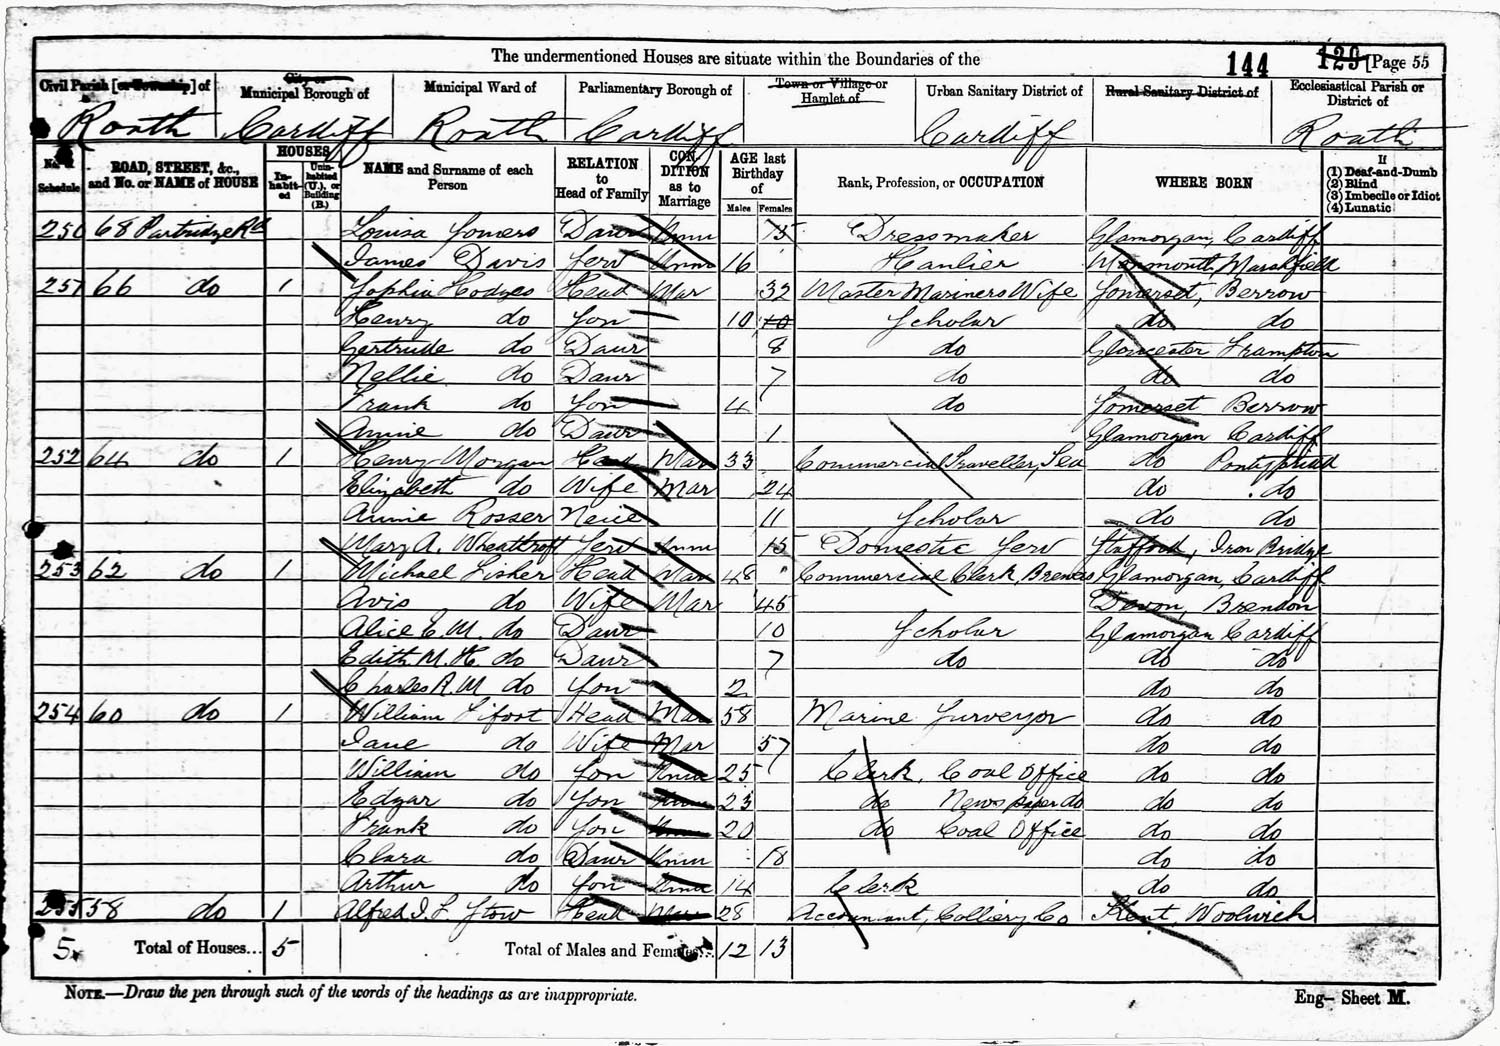 The undermentioned Houses are situate within the Boundaries of the 144 129 [Page 55
Civil Parish [or Township] of City or Municipal Borough of Municipal Ward of Parliamentary Borough of Town or Village or Hamlet of Urban Sanitary District of Rural Sanitary District of Ecclesiastical Parish or District of
Roath Cardiff Roath Cardiff Cardiff Roath
No. of Schedule ROAD, STREET, &c., and No. or NAME of HOUSE HOUSES In-habit-ed Unin-habited (U.), or Building (B.) NAME and Surname of each Person RELATION to Head of Family CON-DITION as to Marriage AGE last Birthday of Males Females Rank, Profession, or OCCUPATION WHERE BORN If (1) Deaf-and-Dumb (2) Blind (3) Imbecile or Idiot (4) Lunatic
250 68 Partridge Rd Louisa Somers Daur Unm 15 Dressmaker Glamorgan, Cardiff
James Davis Serv Unm 16 Haulier Monmouth, Marshfield
251 66 do 1 Sophia Hodges Head Mar 32 Master Mariners Wife Somerset, Berrow
Henry do Son 10 10 Scholar do do
Gertrude do Daur 8 do Gloucester Frampton
Nellie do Daur 7 do do do
Frank do Son 4 do Somerset Berrow
Annie do Daur 1 Glamorgan Cardiff
252 64 do 1 Henry Morgan Head Mar 33 Commercial Traveller, Tea do Pontypridd
Elizabeth do Wife Mar 24 do do
Annie Rosser Neice 11 Scholar do do
Mary A. Serv Unm 15 Domestic Serv Stafford, Iron Bridge
253 62 do 1 Michael Fisher Head Mar 48 Commercial Clerk, Glamorgan, Cardiff
Avis do Wife Mar 45 Devon, Brendon
Alice E. M. do Daur 10 Scholar Glamorgan Cardiff
Edith M. H. do Daur 7 do do do
Charles A. M do Son 2 do do
254 60 do 1 William Lifoot Head Mar 58 Marine Surveyor do do
Jane do Wife Mar 57 do do
William do Son Unm 25 Clerk, Coal Office do do
Edgar do Son Unm 23 do Newspaper do do do
Frank do Son Unm 20 do Coal Office do do
Clara do Daur Unm 18 do do
Arthur do Son Unm 14 Clerk do do
255 58 do 1 Alfred J. L. Stow Head Mar 28 Accountant, Colliery Co Kent, Woolwich
5 Total of Houses... 5 Total of Males and Females... 12 13
NOTE.—Draw the pen through such of the words of the headings as are inappropriate. Eng— Sheet M.